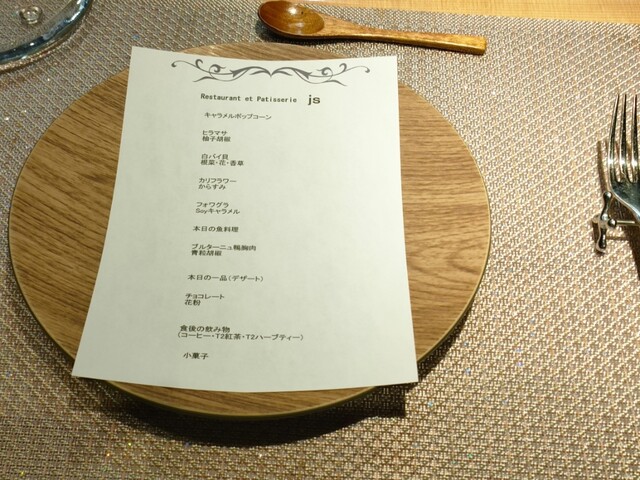 Restaurant et Patisserie js
キャラメルポップコーン
ヒラマサ
柚子胡椒
白バイ貝
根菜・花・香草
カリフラワー
からすみ
フォワグラ
Soyキャラメル
本日の魚料理
ブルターニュ鴨胸肉
青粒胡椒
本日の一品(デザート)
チョコレート
花粉
食後の飲み物
(コーヒー・T2紅茶・T2ハーブティー)
小菓子